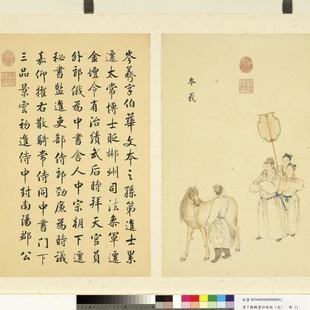 岑羲
岑羲字伯華文本之孫第進士累
遷太常博士貶郴州司法參軍遷
金壇令有治績武后時拜天官員
外郎俄為中書舍人中宗朝下遷
秘書監進吏部侍郎勁廉為時議
嘉仰擢右散騎常侍同中書門下
三品景雲初進侍中封南陽郡公